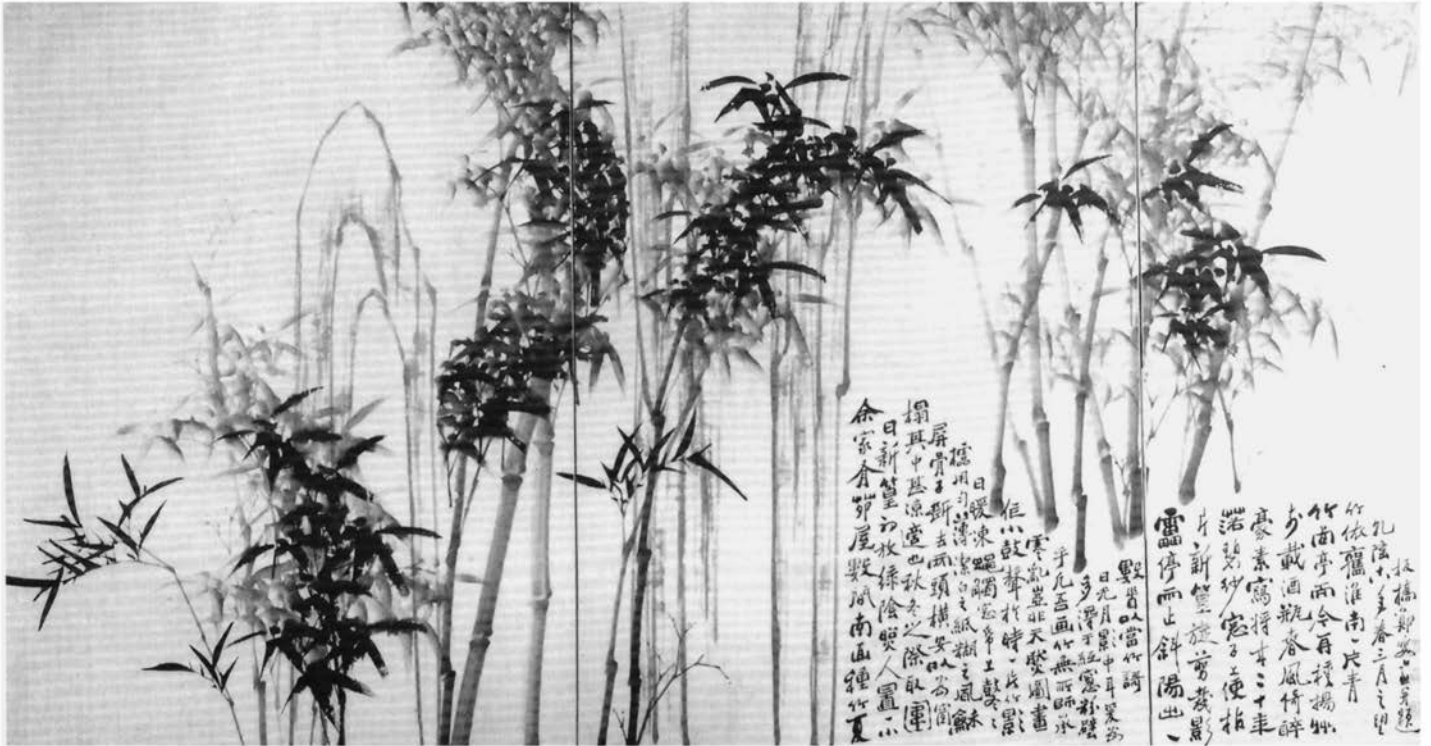 余家有茆屋數间南面種竹夏
日新篁初放綠陰照人置一小
榻其中甚凉適也秋冬之際取圍
屏骨子斷去兩頭横安以為窗
櫺用匀薄潔白之紙糊之風龢
日暖凍蠅觸窓帋上鼕々
作小鼓聲於時一片竹影
零亂豈非天然圖畫
乎凡吾画竹無所師承
多得于紙窓粉壁
日光月影中耳爰為
數首以當竹詩
雷停雨止斜陽出一
片新篁旋剪裁影
落碧紗窓子上便拈
豪素寫將来二十年
前載酒瓶春風倚醉
竹西亭而今再種揚州
竹依舊淮南一片青
乾隆年春三月之望
板橋鄭燮画并題